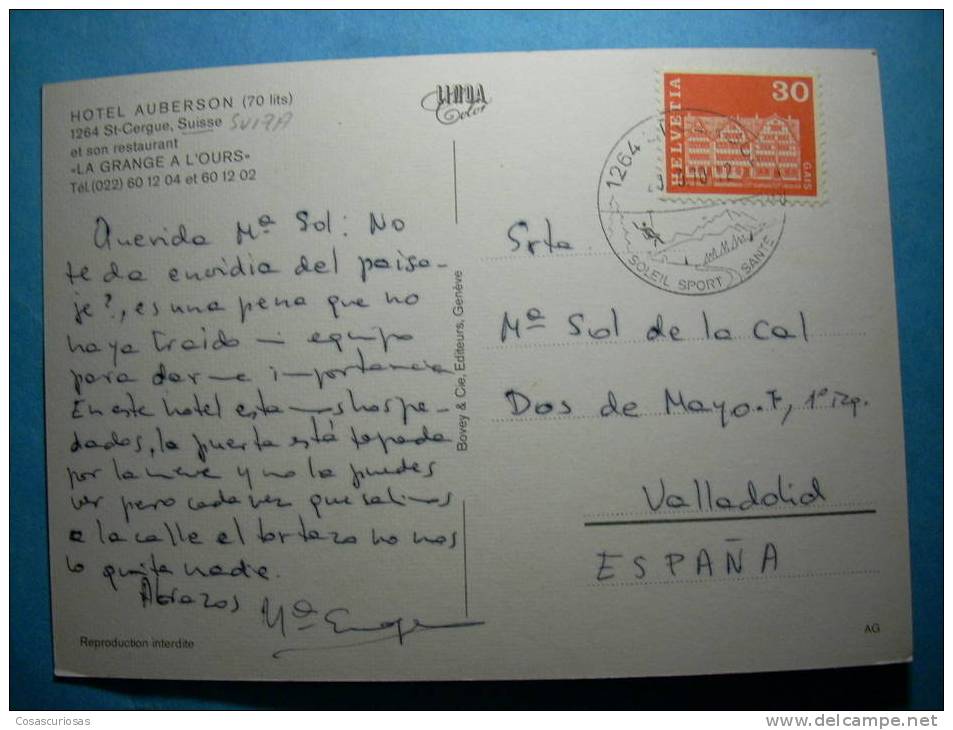 HOTEL AUBERSON (70 lits)
1264 St-Cergue, Suisse SUIZA
et son restaurant
«LA GRANGE A L'OURS»
Tél. (022) 60 12 04 et 60 12 02
Color
HELVETIA
30
GAIS
1264
SOLEIL SPORT SANTE
Querida Mª Sol: No
te da envidia del paisa-
je?, es una pena que no
haya traido mi equipo
para darme importancia
En este hotel estamos hospe-
dados, la puerta está tapada
por la nieve y no la puedes
ver pero cada vez que salimos
a la calle el tortazo no nos
lo quita nadie.
Abrazos
Mª
Bovey & Cie, Editeurs, Genève
Srta.
Mª Sol de la Cal
Dos de Mayo. 7, 1º izq.
Valladolid
ESPAÑA
Reproduction interdite
AG
Cosascuriosas
www.delcampe.net